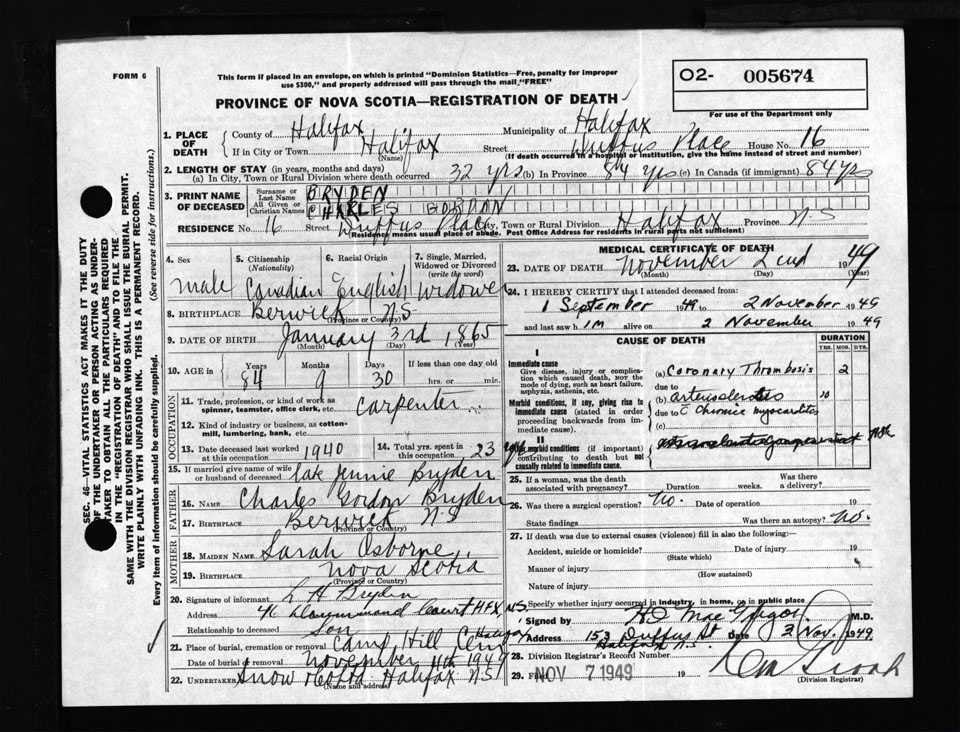 FORM 6
This form if placed in an envelope, on which is printed "Dominion Statistics—Free, penalty for improper
use $300," and properly addressed will pass through the mail "FREE"
O2- 005674
For use of the Department only
PROVINCE OF NOVA SCOTIA—REGISTRATION OF DEATH
1. PLACE OF DEATH
County of Halifax Municipality of Halifax
If in City or Town Halifax (Name) Street Duffus Place House No. 16
(If death occurred in a hospital or institution, give the name instead of street and number)
2. LENGTH OF STAY (in years, months and days)
(a) In City, Town or Rural Division where death occurred 32 yrs (b) In Province 84 yrs (c) In Canada (if immigrant) 84 yrs
3. PRINT NAME OF DECEASED
Surname or Last Name BRYDEN
All Given or Christian Names CHARLES GORDON
RESIDENCE No. 16 Street Duffus Place City, Town or Rural Division Halifax Province N.S
(Residence means usual place of abode. Post Office Address for residents in rural parts not sufficient)
4. Sex
male
5. Citizenship (Nationality)
Canadian
6. Racial Origin
English
7. Single, Married, Widowed or Divorced (write the word)
Widower
8. BIRTHPLACE Berwick N.S.
(Province or Country)
9. DATE OF BIRTH January 3rd 1865
(Month) (Day) (Year)
10. AGE in Years Months Days If less than one day old
84 9 30 hrs. or min.
OCCUPATION
11. Trade, profession or kind of work as spinner, teamster, office clerk, etc. Carpenter
12. Kind of industry or business, as cotton-mill, lumbering, bank, etc.
13. Date deceased last worked at this occupation 1940
14. Total yrs. spent in this occupation 23 yrs
15. If married give name of wife or husband of deceased late Jennie Bryden
FATHER
16. NAME Charles Gordon Bryden
17. BIRTHPLACE Berwick N.S
(Province or Country)
MOTHER
18. MAIDEN NAME Sarah Osborne
19. BIRTHPLACE Nova Scotia
(Province or Country)
20. Signature of informant L H Bryden
Address 46 Drummond Court HFX, N.S.
Relationship to deceased Son
21. Place of burial, cremation or removal Camp Hill Cem Halifax
Date of burial or removal November 4th 1949
22. Undertaker Snow & Co Ltd Halifax N.S
(Name and address)
MEDICAL CERTIFICATE OF DEATH
23. DATE OF DEATH November 2nd 1949
(Month) (Day) (Year)
24. I HEREBY CERTIFY that I attended deceased from:
1 September 1949 to 2 November 1949
and last saw him alive on 2 November 1949
CAUSE OF DEATH
DURATION
YRS. MOS. DYS.
I
Immediate cause
Give disease, injury or complication which caused death, not the mode of dying, such as heart failure, asphyxia, asthenia, etc.
(a) Coronary Thrombosis 2
due to
Morbid conditions, if any, giving rise to immediate cause (stated in order proceeding backwards from immediate cause).
(b) arteriosclerosis 10
due to c Chronic myocarditis
(c)
II
Other morbid conditions (if important) contributing to death but not causally related to immediate cause.
25. If a woman, was the death associated with pregnancy? Duration weeks. Was there a delivery?
26. Was there a surgical operation? No. Date of operation 19
State findings Was there an autopsy? No.
27. If death was due to external causes (violence) fill in also the following:—
Accident, suicide or homicide? (State which) Date of injury 19
Manner of injury (How sustained)
Nature of injury
Specify whether injury occurred in industry, in home, or in public place
Signed by H D MacGregor M.D.
Address 153 Duffus St Date 3 Nov. 1949
Halifax N.S.
28. Division Registrar's Record Number
29. Filed NOV 7 1949 19
(Division Registrar)
SEC. 46—VITAL STATISTICS ACT MAKES IT THE DUTY
OF THE UNDERTAKER OR PERSON ACTING AS UNDER-
TAKER TO OBTAIN ALL THE PARTICULARS REQUIRED
IN THE "REGISTRATION OF DEATH" AND TO FILE THE
SAME WITH THE DIVISION REGISTRAR WHO SHALL ISSUE THE BURIAL PERMIT.
WRITE PLAINLY WITH UNFADING INK. THIS IS A PERMANENT RECORD.
Every item of information should be carefully supplied. (See reverse side for instructions.)